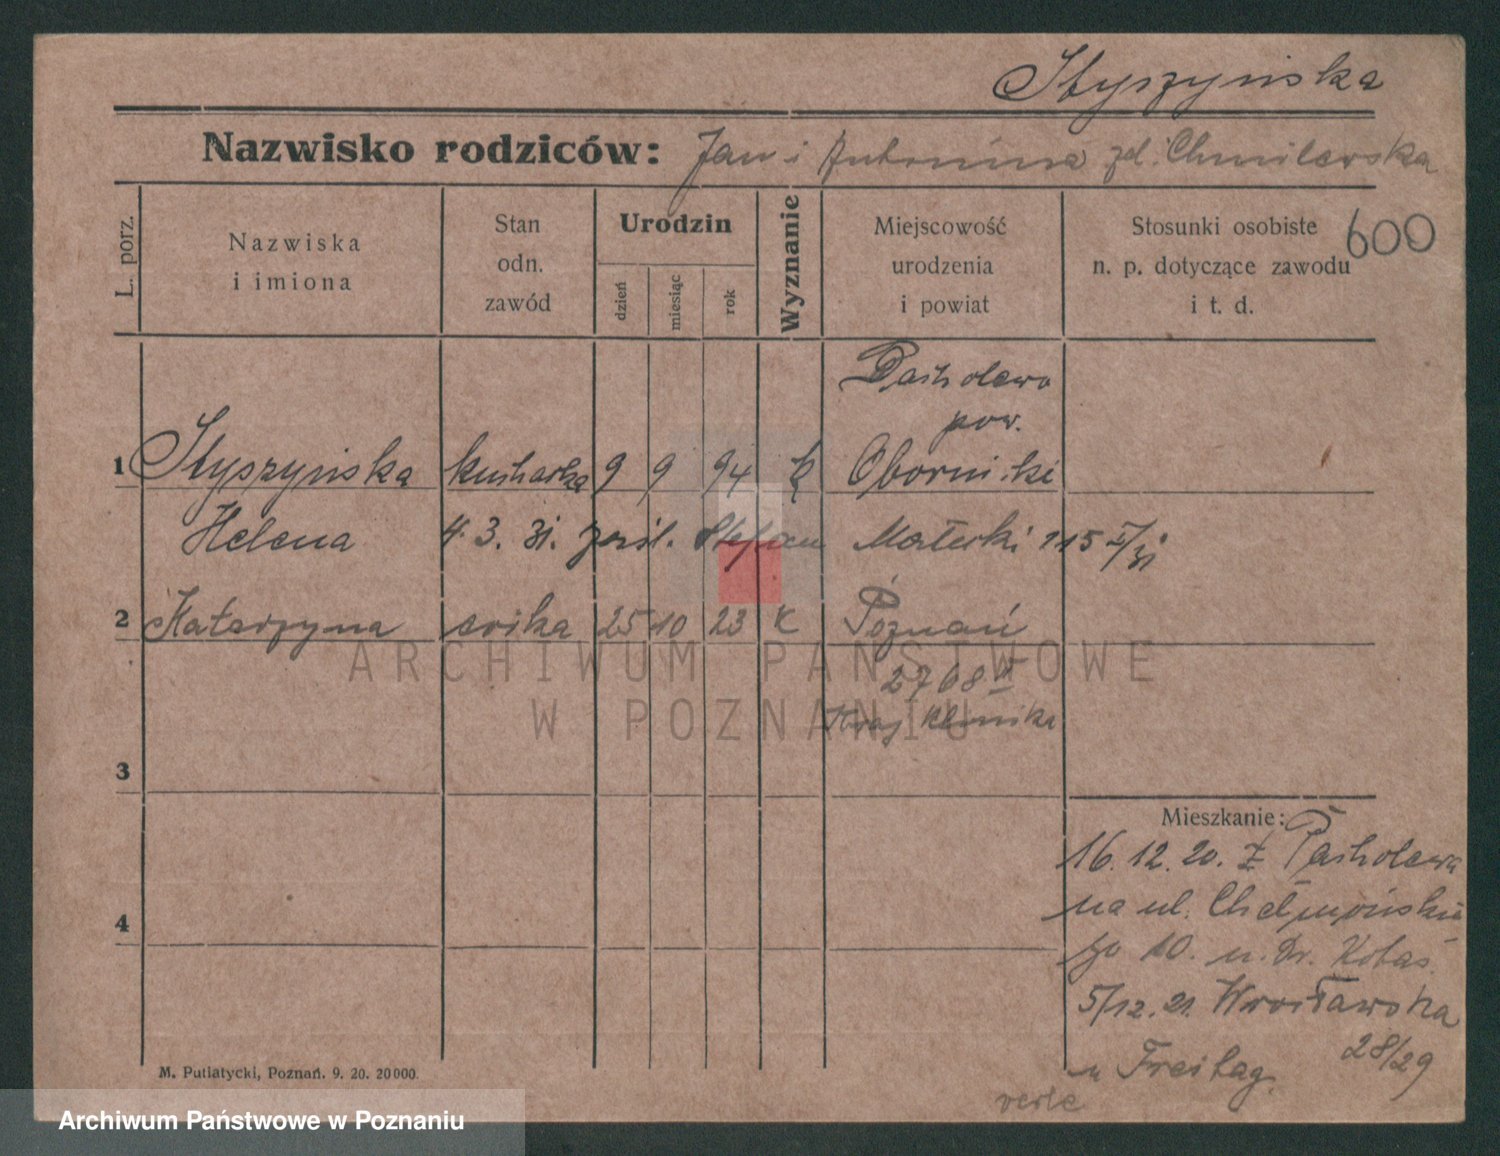 Styszyńska
Nazwisko rodziców: Jan i Antonina zd. Chmilewska
L. porz.
Nazwiska
i imiona
Stan
odn.
zawód
Urodzin
dzień
miesiąc
rok
Wyznanie
Miejscowość
urodzenia
i powiat
Stosunki osobiste
n. p. dotyczące zawodu
i t. d.
600
Pacholewo
pow.
1 Styszyńska kucharka 9 9 94 k Oborniki
Helena 4. 3. 31. zaśl. Stefan Małecki 115 I/31
2 Katarzyna córka 25 10 23 K Poznań
2768 II
Kraj klinika
3
Mieszkanie:
16. 12. 20. z Pacholewa
na ul. Chełmońskie
go 10. u. Dr. Kolas.
5/12. 21. Wrocławska
28/29
u Freitag.
verte
4
M. Putiatycki, Poznań. 9. 20. 20000.
ARCHIWUM PAŃSTWOWE
W POZNANIU
Archiwum Państwowe w Poznaniu